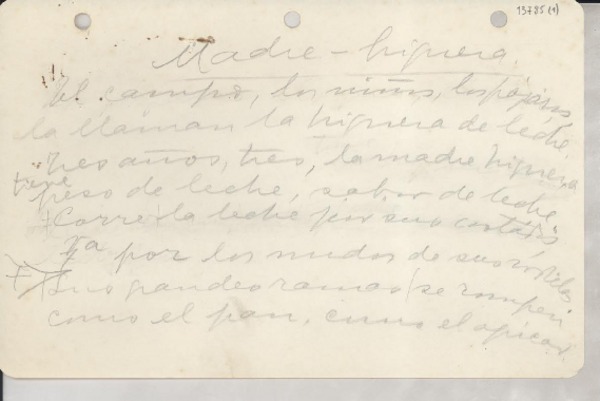 13785(1)
Madre-higuera.
El campo, los niños, los pájaros
la llaman la higuera de leche.
Tres años, tres, la madre higuera
tuvo
peso de leche, sabor de leche.
Corre la leche por sus costados
Ya por los nudos de sus rodillas
Sus grandes ramas se rompen
como el pan, como el azúcar.